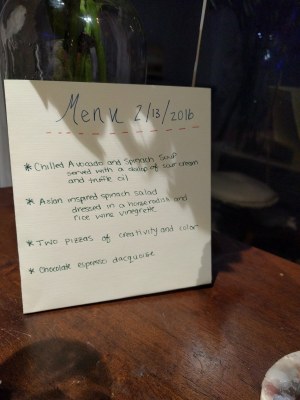 Menu 2/13/2016
* Chilled Avocado and Spinach Soup
served with a dallop of sour cream
and truffle oil
* Asian inspired spinach salad
dressed in a horseradish and
rice wine vinegrette
* Two pizzas of creativity and color
* Chocolate espresso dacquoise